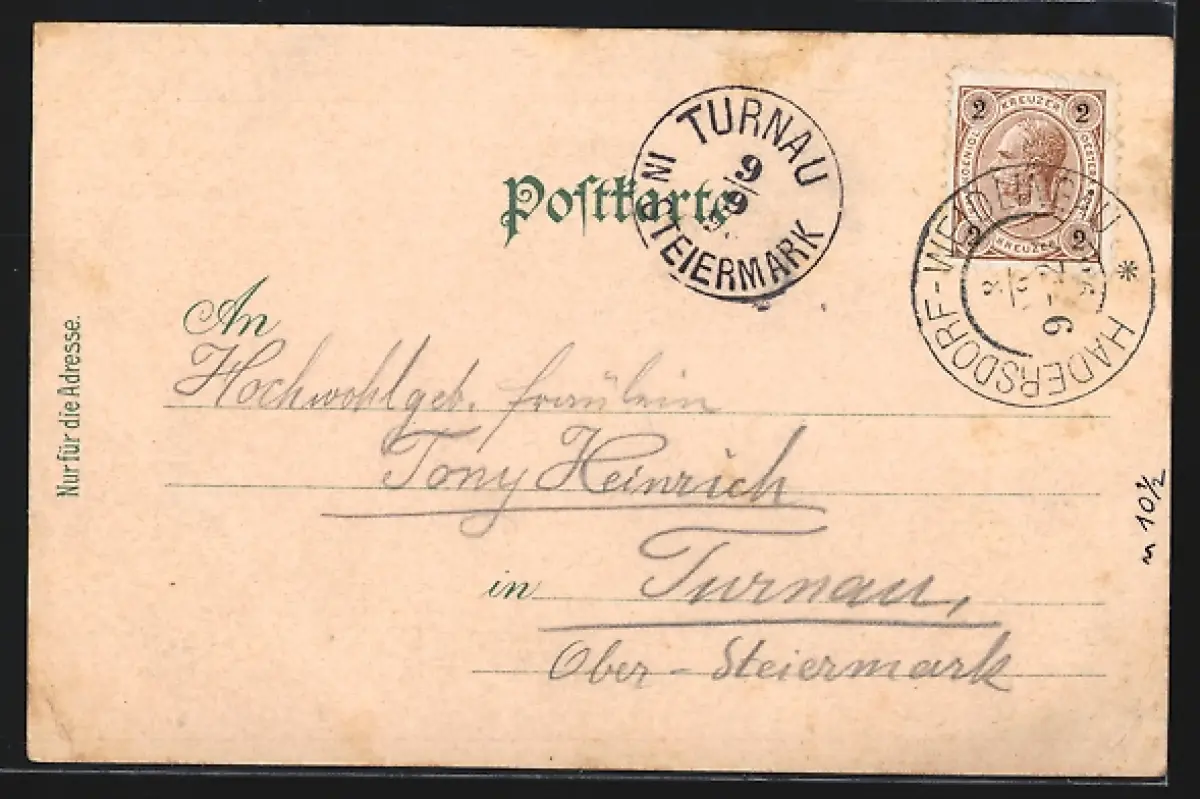 Postkarte
TURNAU
IN STEIERMARK
9/9
2 KREUZER 2
2 KREUZER 2
HADERSDORF-WEIDLINGAU *
8/9
6
An
Hochwohlgeb. Fräulein
Tony Heinrich
in Turnau,
Ober-Steiermark
Nur für die Adresse.
m 10½